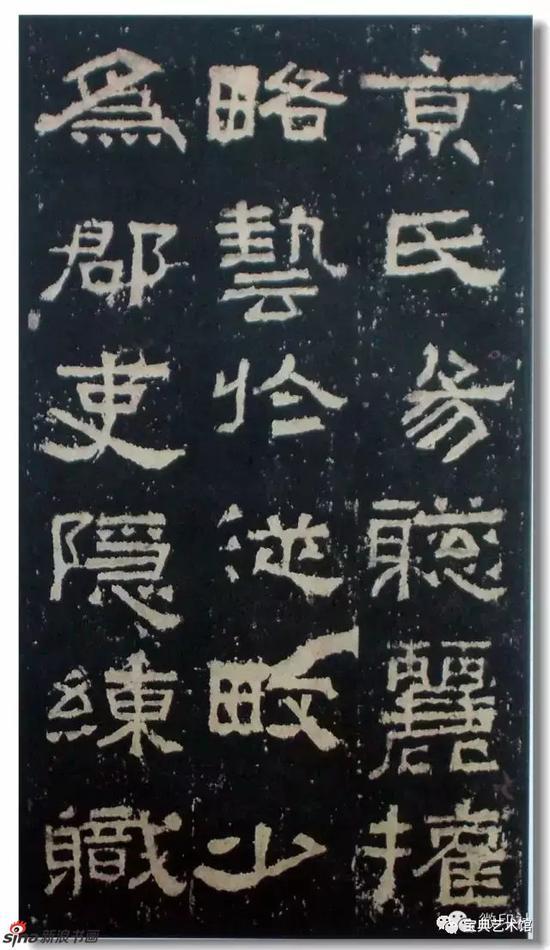 京氏易聰麗權
略藝於從畋少
為郡吏隱練職
sina 新浪书画
宝典艺术馆